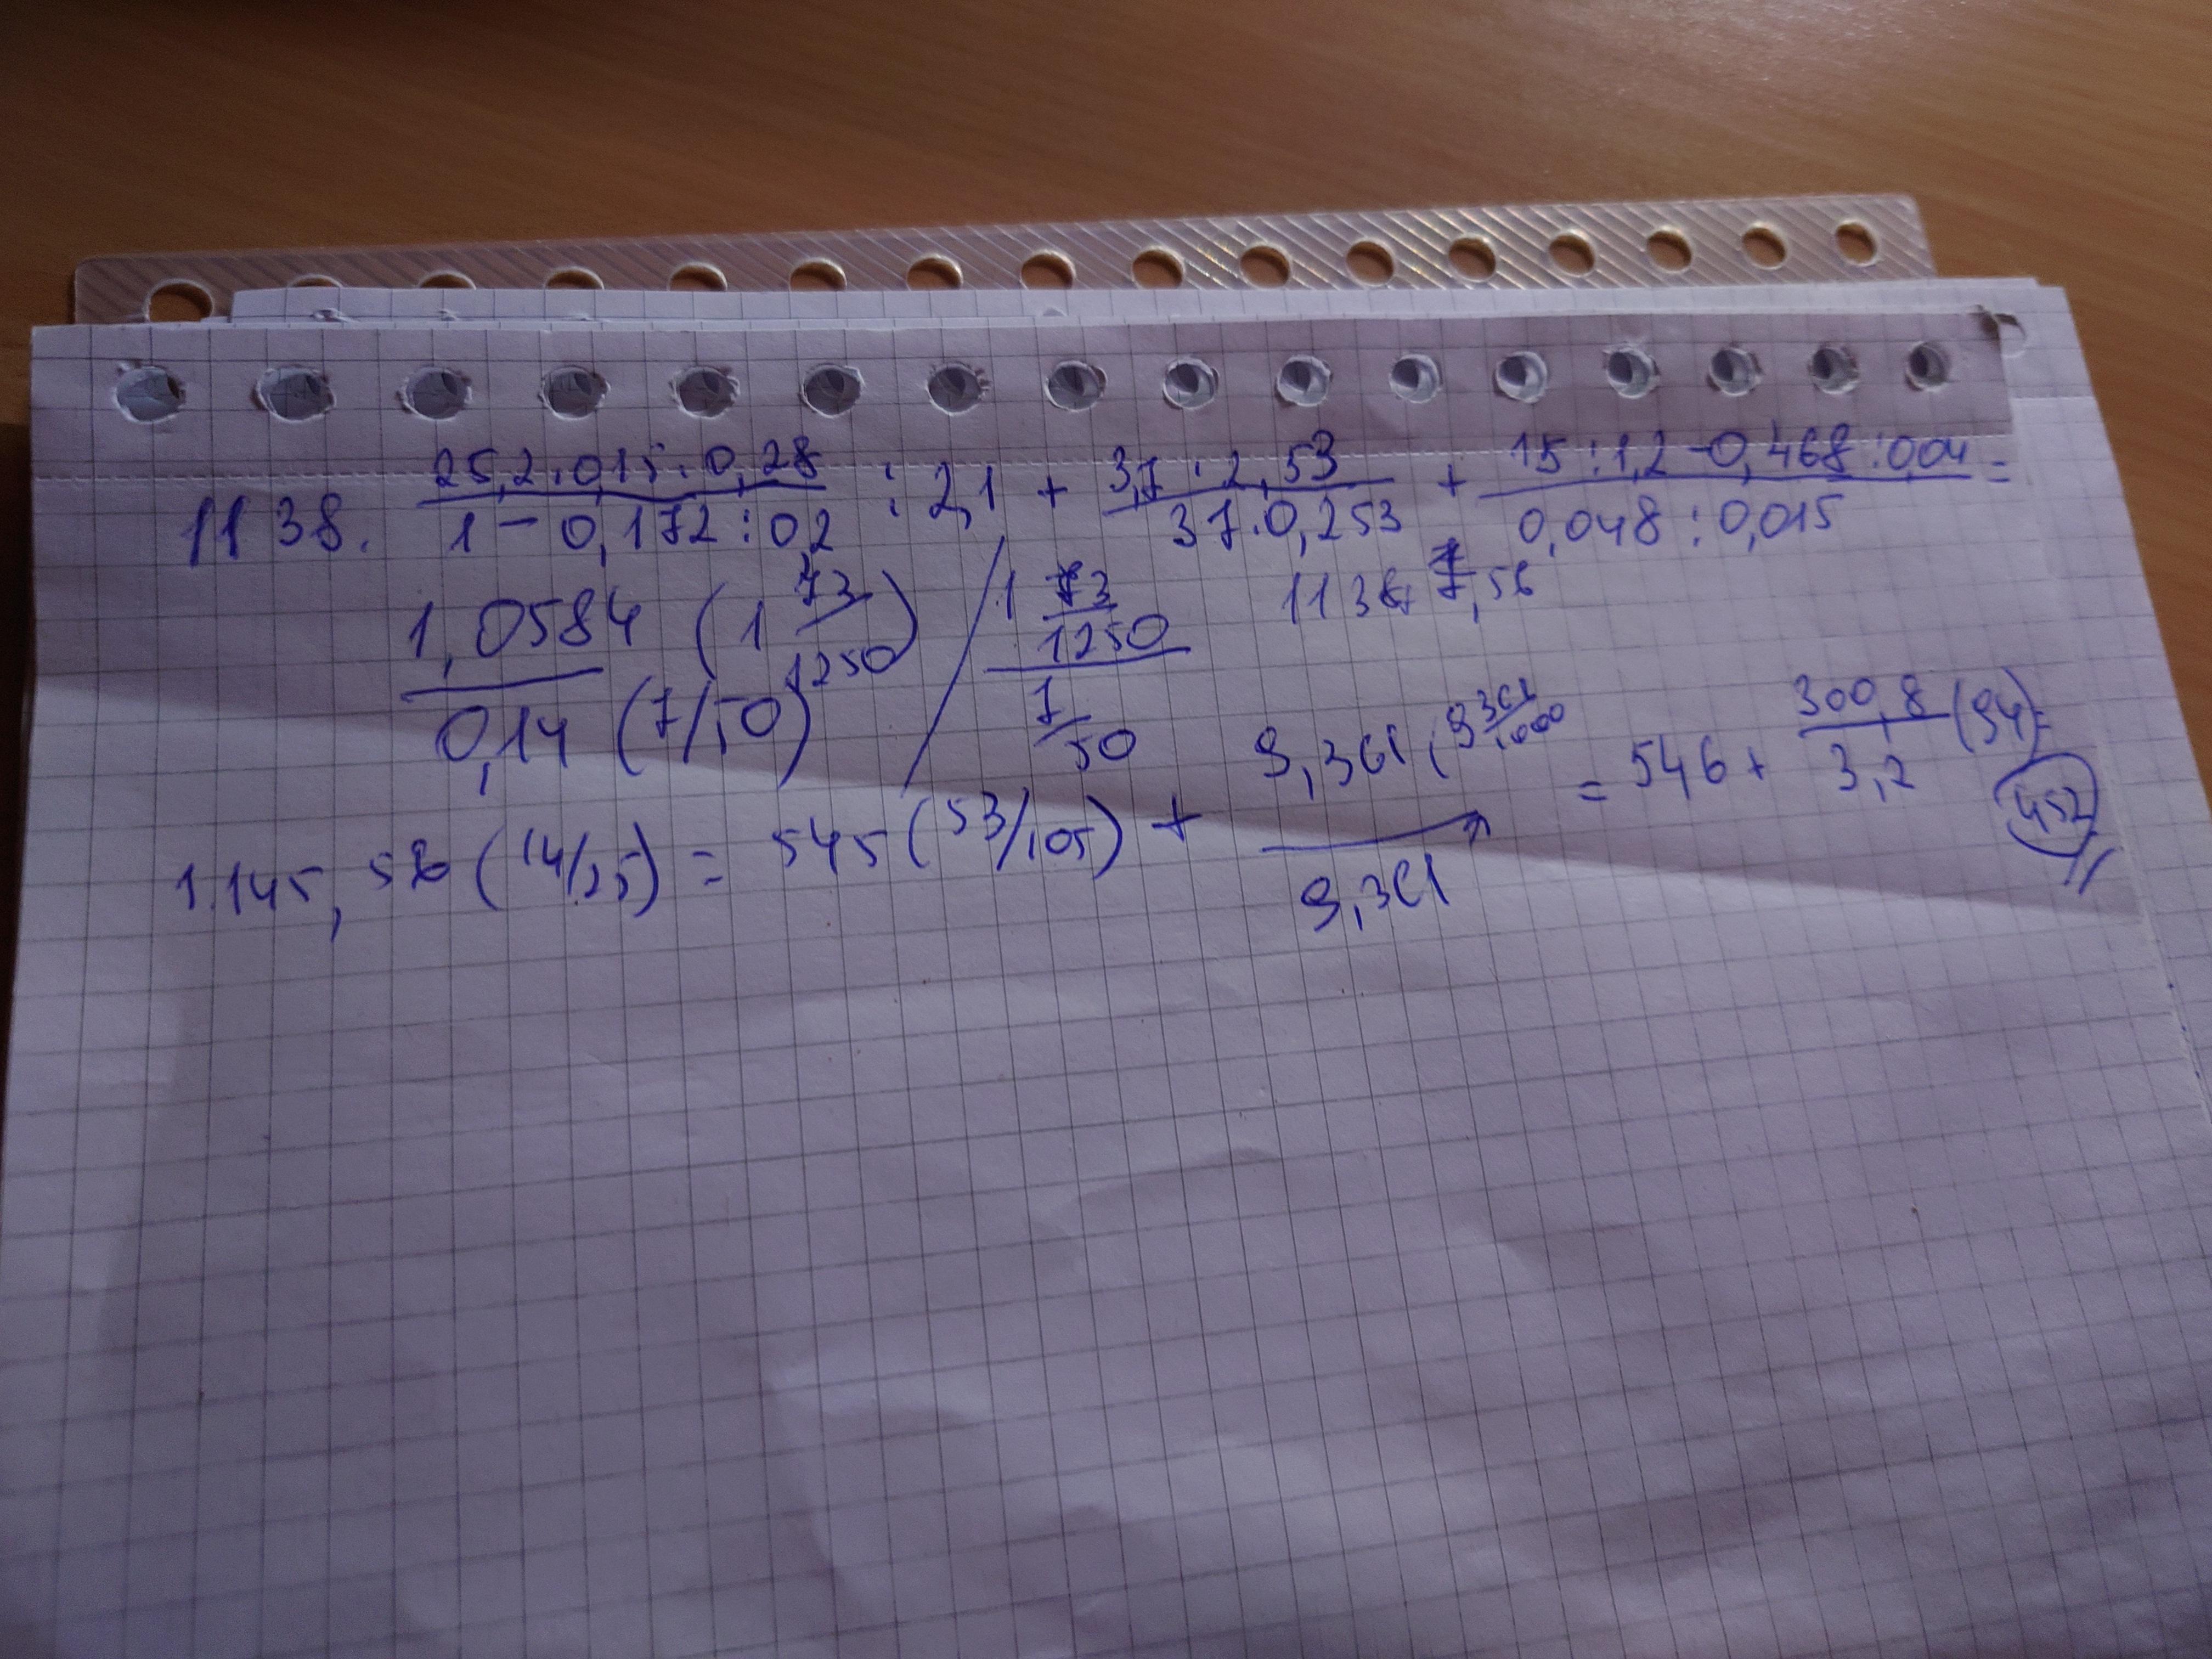 1138. 25,2·0,15·0,28 / 1-0,172:0,2 : 2,1 + 3,7·2,53 / 37·0,253 + 15:1,2-0,468:0,04 / 0,048:0,015 =
1,0584 (1 73/1250) / 0,14 (7/50)
1 73/1250 / 7/50
1138, 7,56
1.145,56 (14/25) = 545 (53/105) + 9,361 (9 361/1000 / 9,361 = 546 + 300,8/3,2 (94) =
452